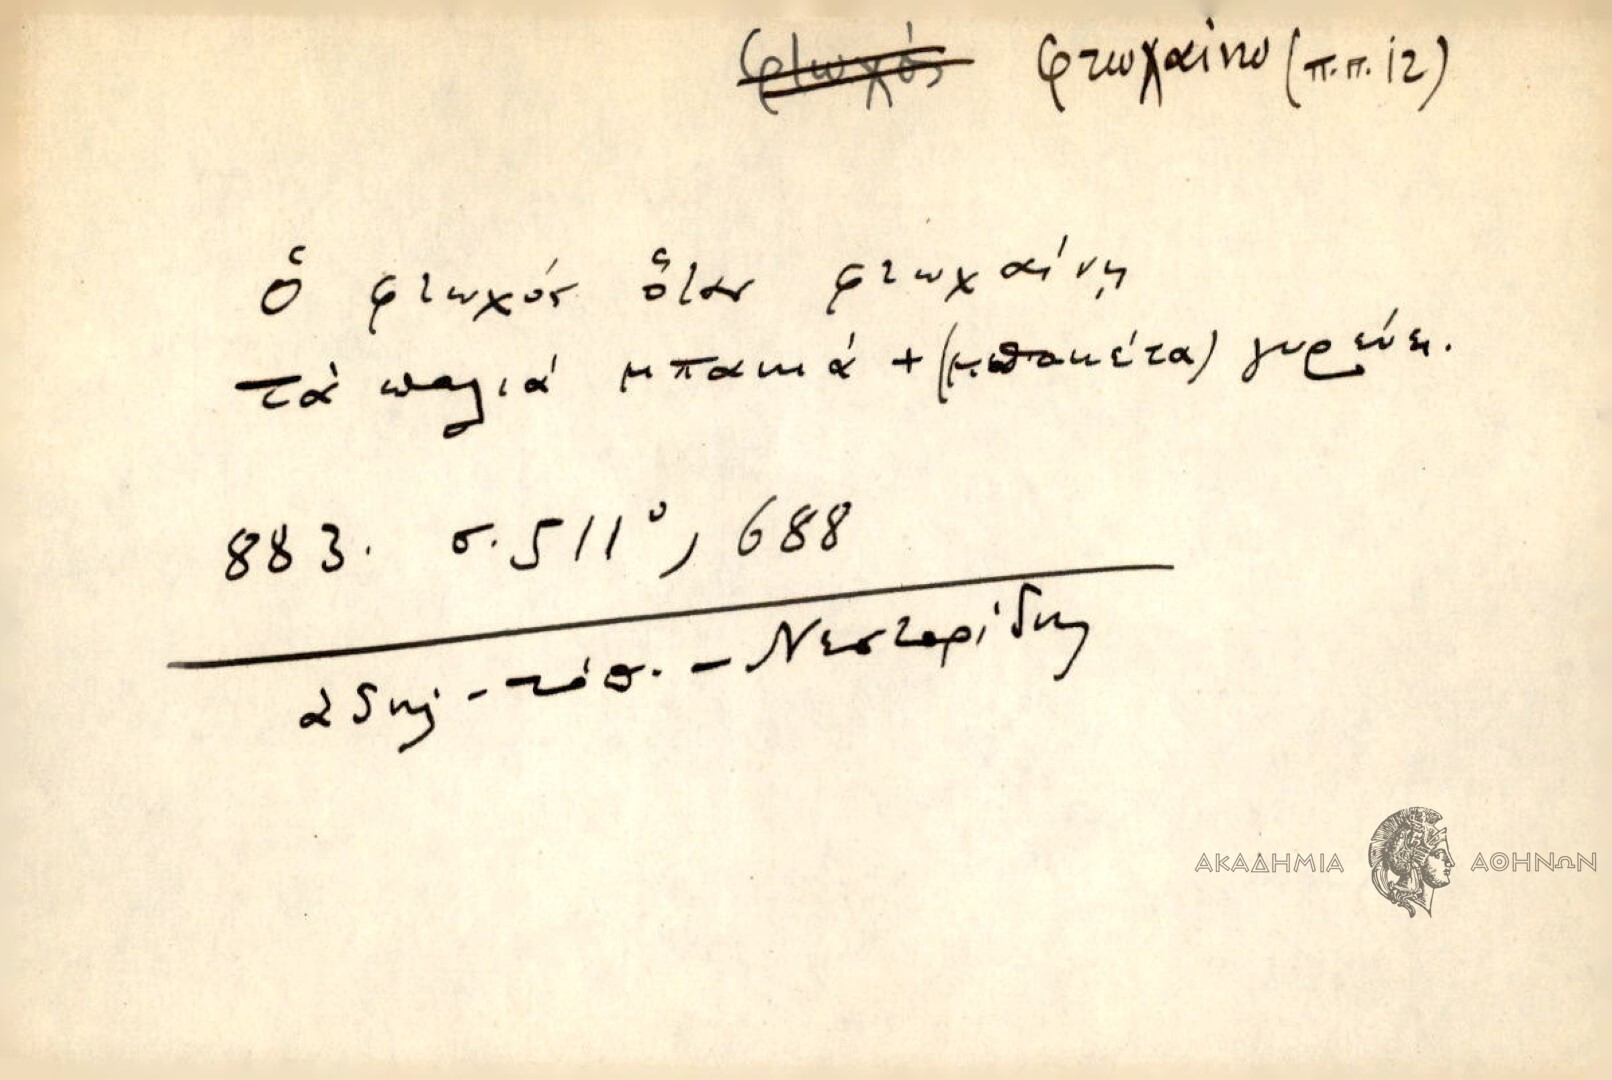 φτωχός φτωχαίνω (π.π. 12)
Ὁ φτωχός ὅταν φτωχαίνῃ
τὰ παλιά μπακιά + (μπακέτα) γυρεύει.
883. σ. 511⁰, 688
ἀδηλ - τόπ. - Νεστορίδης
ΑΚΑΔΗΜΙΑ ΑΘΗΝΩΝ